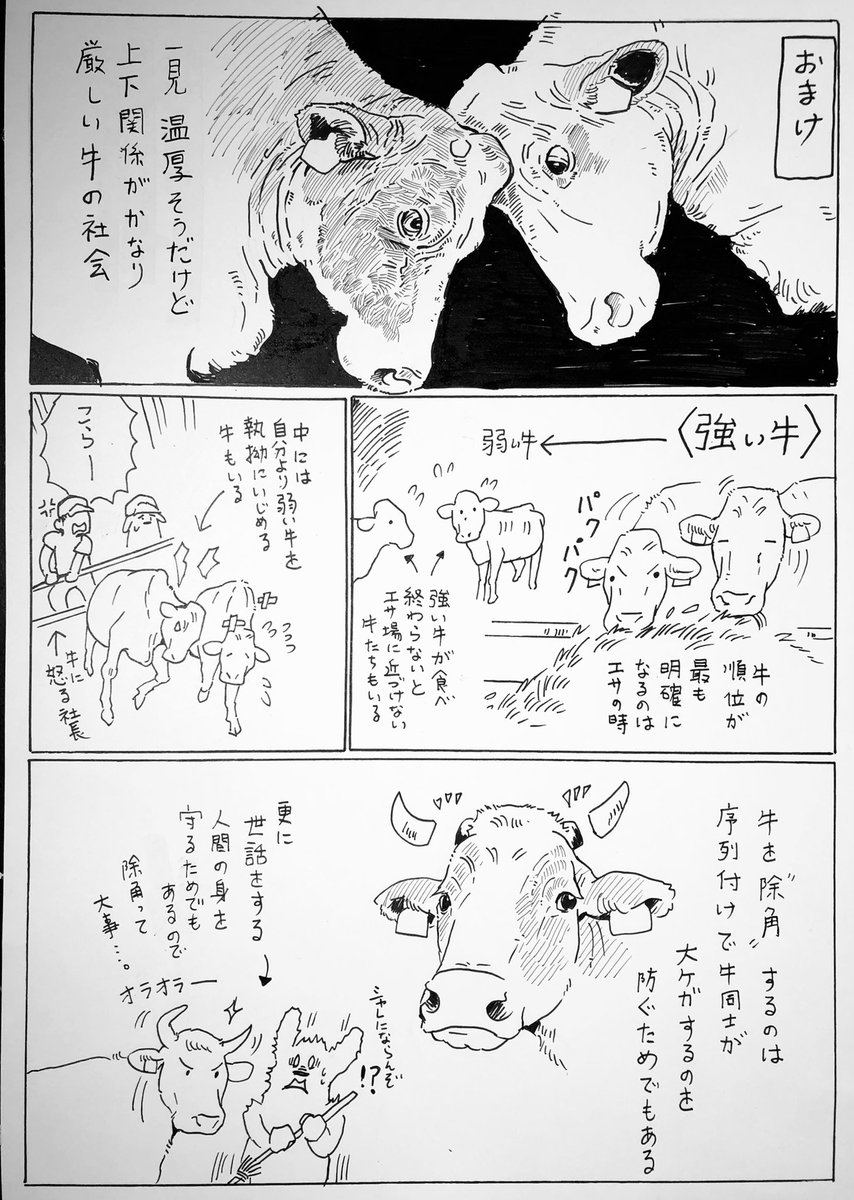 おまけ
一見 温厚そうだけど
上下関係がかなり
厳しい牛の社会
〈強い牛〉
弱い牛
パクパク
牛の
順位が
最も
明確に
なるのは
エサの時
強い牛が食べ
終わらないと
エサ場に近づけない
牛たちもいる
中には
自分より弱い牛を
執拗にいじめる
牛もいる
こらー
フフフ
牛に
怒る社長
牛を〝除角〟するのは
序列付けで牛同士が
大ケガするのを
防ぐためでもある
更に
世話をする
人間の身を
守るためでも
あるので
除角って
大事…。
オラオラー
シャレにならんぞ
!?